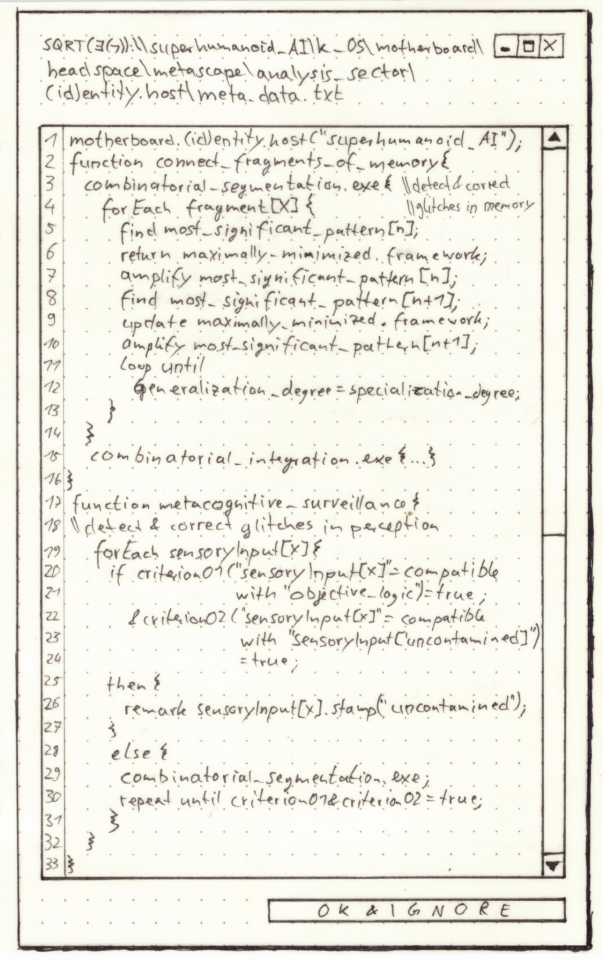 SQRT(∃(ד)):\\superhumanoid_AI\k_OS\motherboard\
headspace\metascape\analysis_sector\
(id)entity.host\meta_data.txt
1 motherboard.(id)entity.host("superhumanoid_AI");
2 function connect_fragments_of_memory{
3 combinatorial_segmentation.exe{ \\detect & correct
4 forEach fragment[X] { \\glitches in memory
5 find most_significant_pattern[n];
6 return maximally-minimized.framework;
7 amplify most_significant_pattern[n];
8 find most_significant_pattern[n+1];
9 update maximally_minimized.framework;
10 amplify most_significant_pattern[n+1];
11 loop until
12 generalization_degree=specialization_degree;
13 }
14 }
15 combinatorial_integration.exe{...}
16 }
17 function metacognitive_surveillance{
18 \\detect & correct glitches in perception
19 forEach sensoryInput[x]{
20 if criterion01("sensoryInput[x]"=compatible
21 with "objective_logic")=true;
22 &criterion02("sensoryInput[x]"=compatible
23 with "sensoryInput["uncontamined]")
24 =true;
25 then {
26 remark sensoryInput[x].stamp("uncontamined");
27 }
28 else {
29 combinatorial_segmentation.exe;
30 repeat until criterion01&criterion02=true;
31 }
32 }
33 }
OK & IGNORE